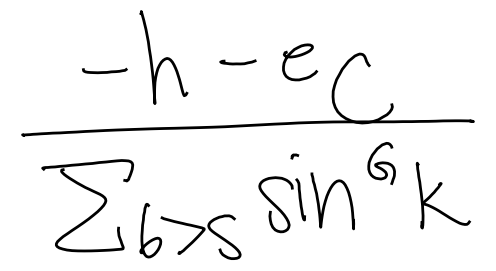 \frac{-h-e_C}{\sum_{b>s} \sin^G k}